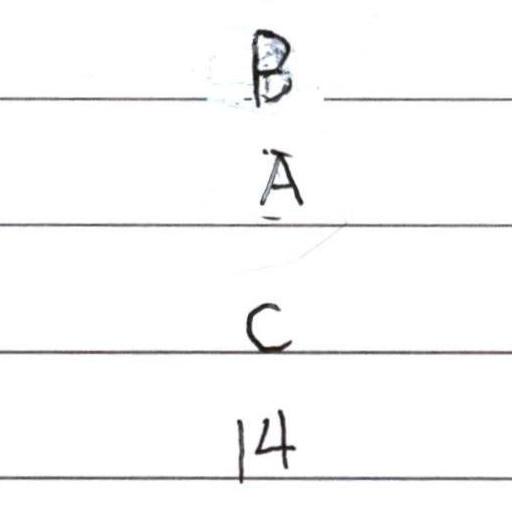 B
A
C
14